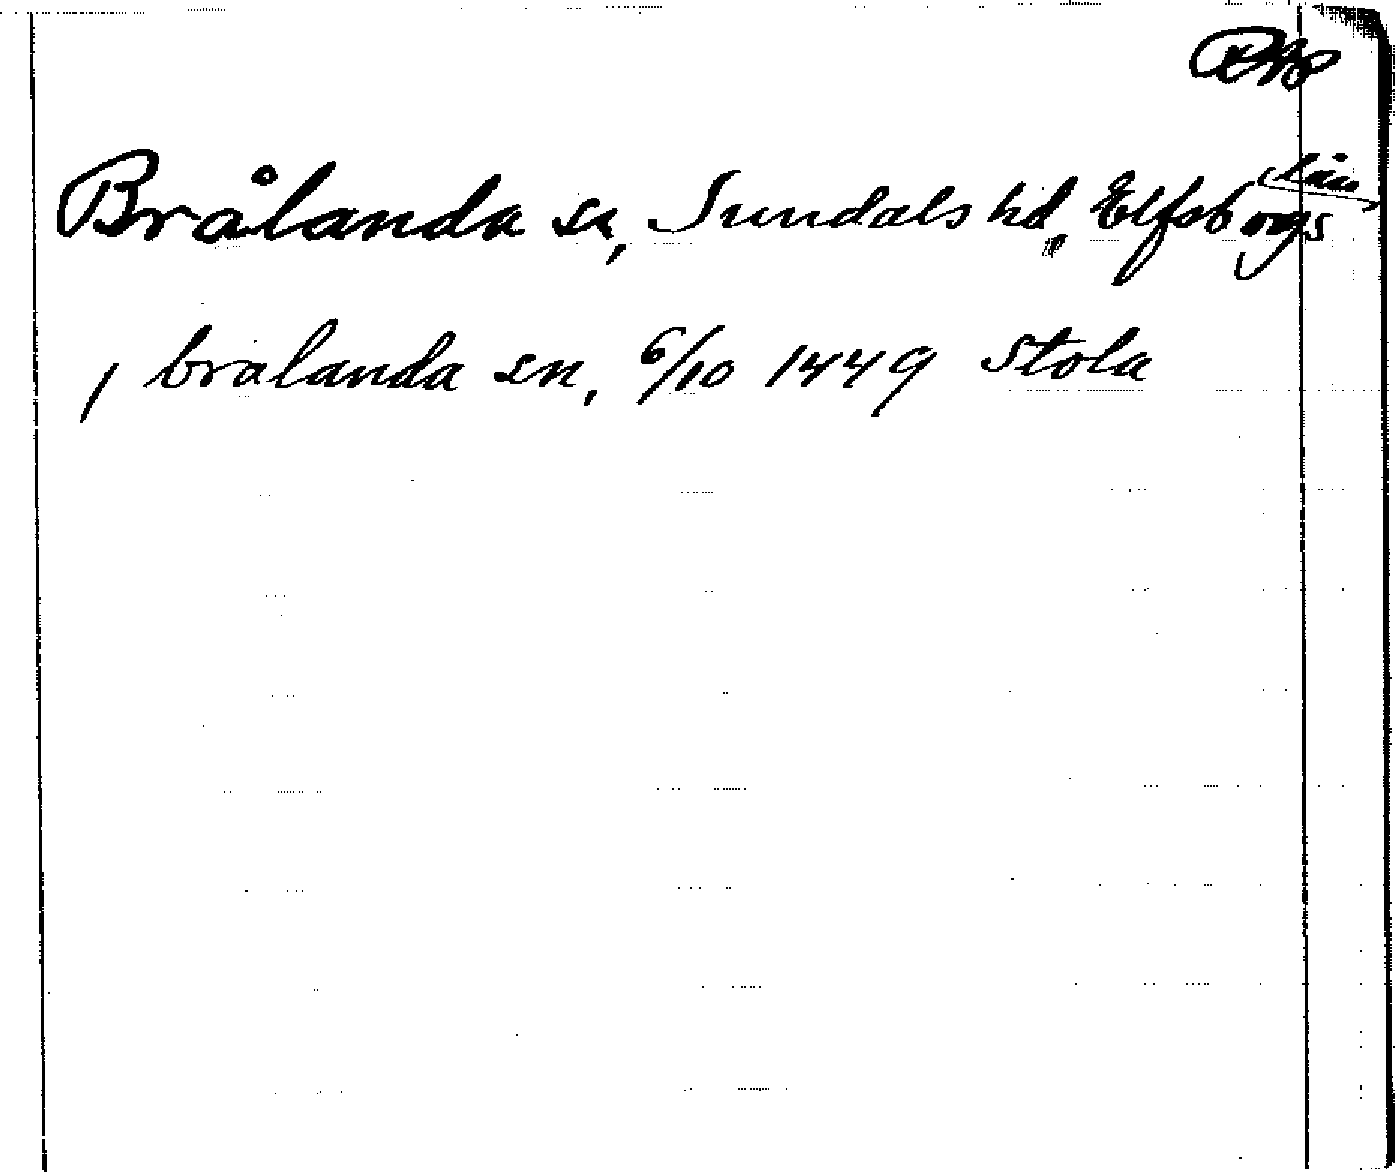 Brålanda sn, Sundals hd, Elfsborgs län
j bralanda sn, 6/10 1449 Stola